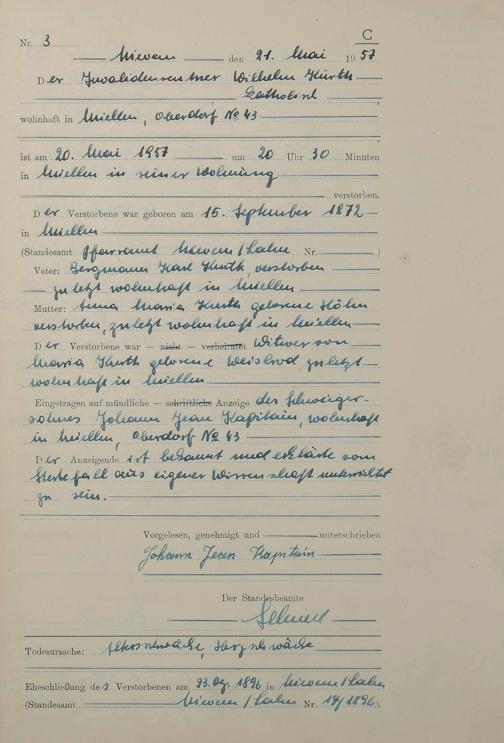 C
Nr. 3
Nievern den 21. Mai 1957
Der Invalidenrentner Wilhelm Kurth
Katholisch
wohnhaft in Miellen, Oberdorf No 43
ist am 20. Mai 1957 um 20 Uhr 30 Minuten
in Miellen in seiner Wohnung
verstorben.
Der Verstorbene war geboren am 15. September 1872
in Miellen
(Standesamt Pfarramt Nievern/Lahn Nr. )
Vater: Bergmann Karl Kurth, verstorben
zuletzt wohnhaft in Miellen
Mutter: Anna Maria Kurth geborene
verstorben, zuletzt wohnhaft in Miellen
Der Verstorbene war — nicht — verheiratet Witwer von
Maria Kurth geborene Weisbrod zuletzt
wohnhaft in Miellen
Eingetragen auf mündliche — schriftliche Anzeige des Schwieger-
sohnes Johann Jean Kapitain, wohnhaft
in Miellen, Oberdorf No 43
Der Anzeigende ist bekannt und erklärte vom
Sterbefall aus eigener Wissenschaft unterrichtet
zu sein.
Vorgelesen, genehmigt und unterschrieben
Johann Jean Kapitain
Der Standesbeamte
Todesursache: Altersschwäche, Herzschwäche
Eheschließung des Verstorbenen am 23. 1896 in Nievern/Lahn
(Standesamt Nievern/Lahn Nr. 14/1896).